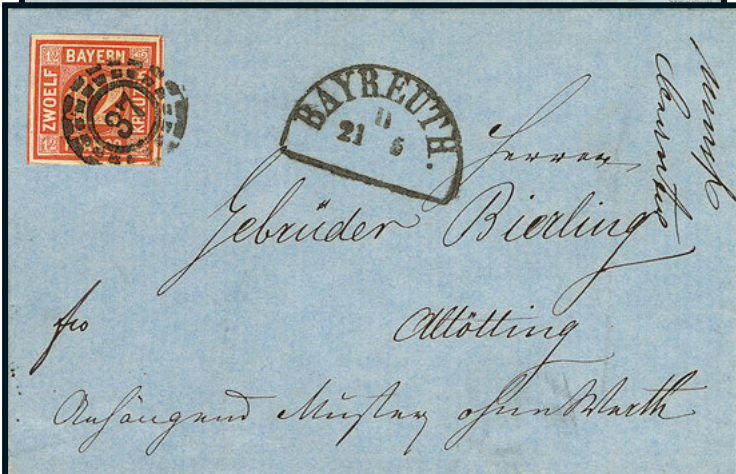 BAYERN
ZWOELF
12
37
BAYREUTH.
II
21
Herren
Gebrüder Bierling
fro
Altötting
Anhängend Muster ohne Werth